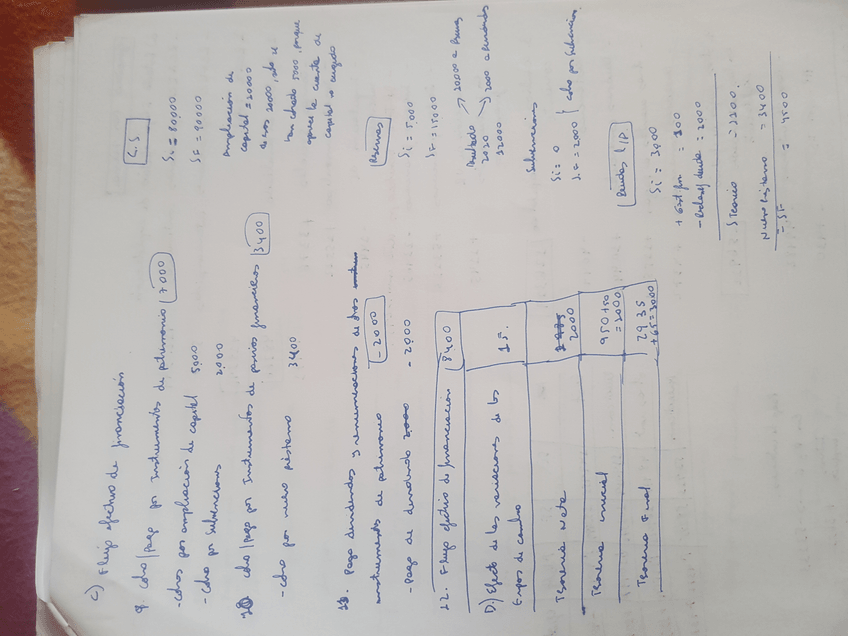 C) Flujo efectivo de financiación
9. Cobro/pago por Instrumentos de patrimonio 7000
- Cobros por ampliación de capital 5000
- Cobro por Subvenciones 2000
10 Cobro/pago por Instrumentos de pasivos financieros 3400
- Cobro por nuevo préstamo 3400
11. Pago dividendos y remuneraciones de otros
instrumentos de patrimonio -2000
- Pago de dividendo -2000
12. Flujo efectivo de financiación 8400
D) Efecto de las variaciones de los
tipos de cambio 15.
Tesorería Neta 2000
Tesorería inicial 950+50
=1000
Tesorería Final 2935
+65=3000
C.S
Si = 80000
SF = 90000
Ampliación de
capital = 10000
de esos 10000, solo se
han cobrado 5000, porque
aparece la cuenta de
capital no exigido
Reservas
Si = 5.000
SF = 15000
Resultado
2020
12000
10000 a Reservas
2000 a dividendos
Subvenciones
Si = 0
SF = 2000
cobro por Subvención
Deudas L/P
Si = 3000
+ Gast fin = 200
- = 2000
S Teórico = 1200
Nuevo Préstamo = 3400
= SF = 4500